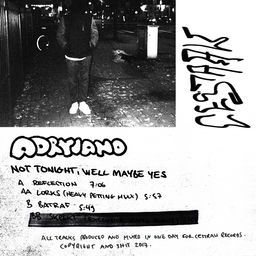 ADRYIANO
NOT TONIGHT, WELL MAYBE YES
A REFLECTION 7:06
AA LORKS (HEAVY PETTING MIXX) 5:57
B BATRAF 5:49
ALL TRACKS PRODUCED AND MIXED IN ONE DAY FOR RECORDS.
COPYRIGHT AND SHIT 2017.